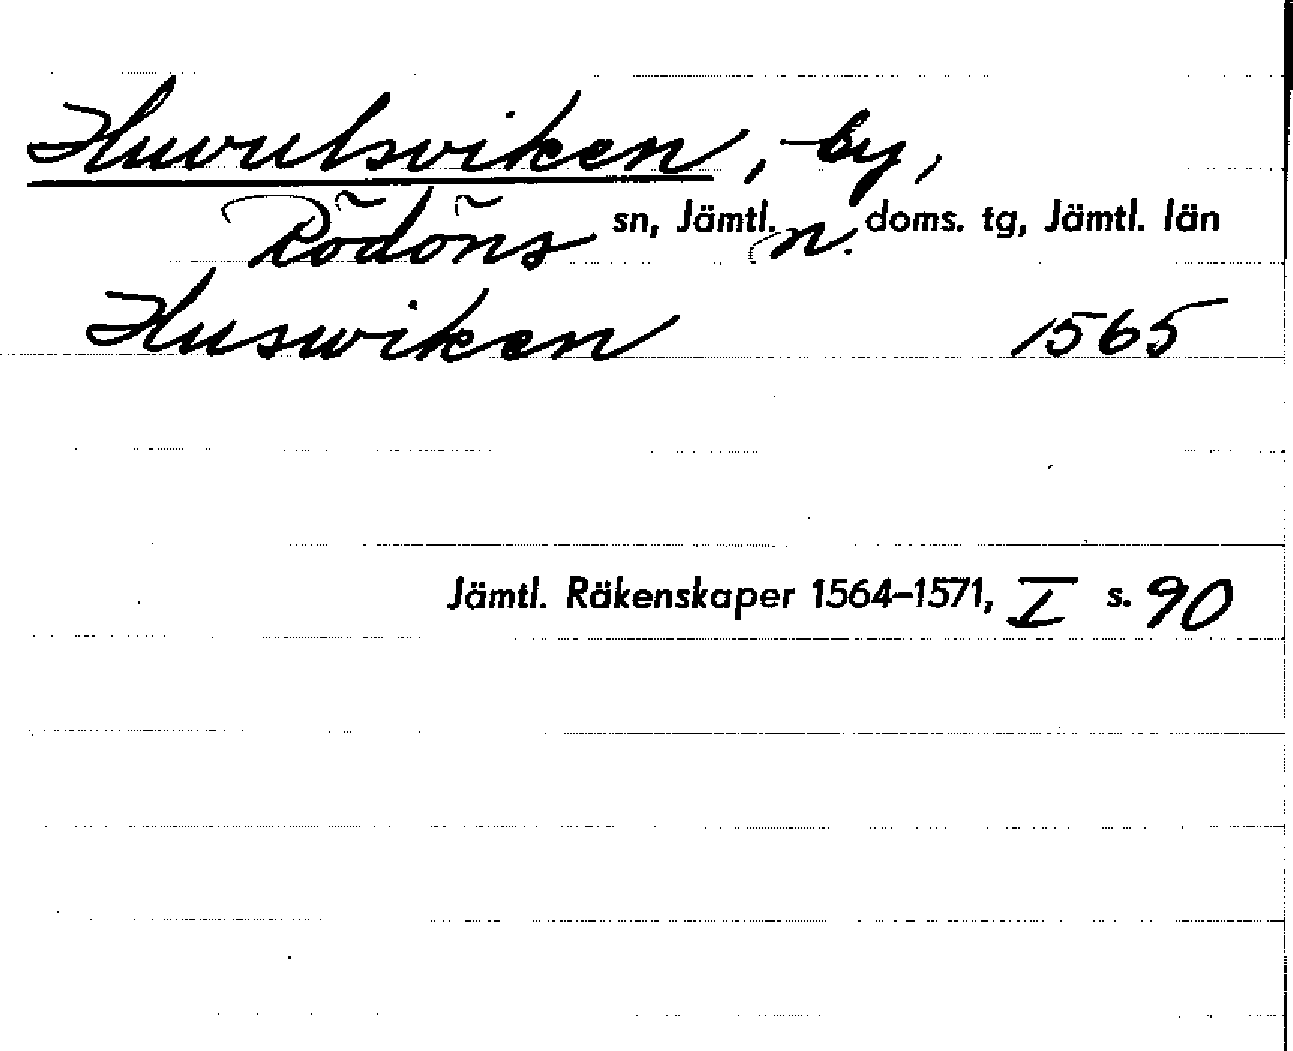 Huvulsviken, by,
Rödöns sn, Jämtl. n. doms. tg, Jämtl. län
Huswiken 1565
Jämtl. Räkenskaper 1564–1571, I s. 90